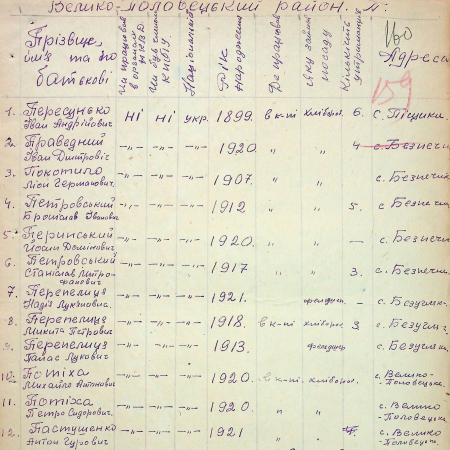 Велико-Половецький район. П:
Прізвище, імʼя та по батькові | Національність | Рік народження | Де працював | яку займав посаду | Кількість утриманців | 160 Адреса
159
1. Пересунько Іван Андрійович | ні | ні | укр. | 1899. | в к-пі | хлібороб. | 6. | с. Пищики.
2. Праведний Іван Дмитровіч | -"- | -"- | -"- | 1920 | " | " | 4 | с. Безпечна
3. Покотило Ліон Германович. | -"- | -"- | -"- | 1907. | " | " | с. Безпечн
4. Петровський Броніслав Іванович | -"- | -"- | -"- | 1912 | " | " | 5. | с. Безпечн
5. Перинський Йосип Домінович | -"- | -"- | -"- | 1920. | " | " | — | с. Безпечн
6. Петровський Станіслав Митрофанович | -"- | -"- | -"- | 1917 | " | " | 3. | с. Безпечн.
7. Перепелиця Надія Лукянівна. | -"- | -"- | -"- | 1921. | — | с. Безугляк.
8. Перепелиця Микита Петрович | -"- | -"- | -"- | 1918. | в к-пі | хлібороб. | 3 | с. Безугля
9. Перепелиця Панас Лукович | -"- | -"- | -"- | 1913. | с. Безугляк.
10. Потіха Михайло Антонович | -"- | -"- | -"- | 1920. | в к-пі | хлібороб. | с. Велико-Половецьк.
11. Потіха Петро Сидорович. | -"- | -"- | -"- | 1920. | " | " | с. Велико-Половецьк.
12. Пастушенко Антон Гурович | -"- | -"- | -"- | 1921 | " | " | с. Велико Половецьк.